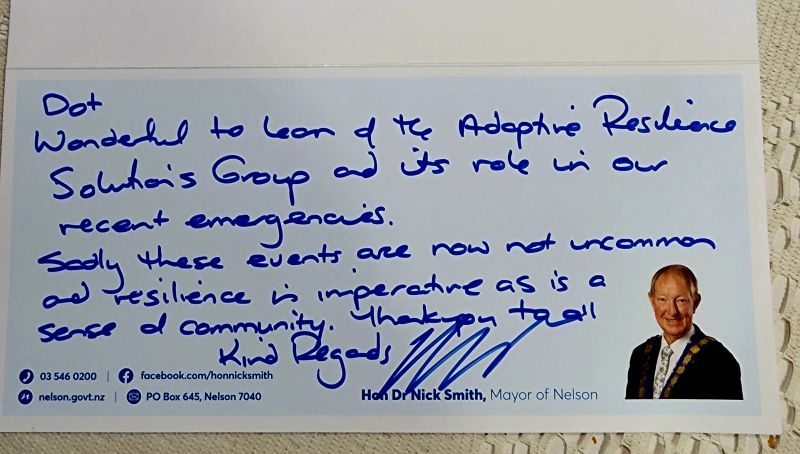 Dot
Wonderful to learn of the Adaptive Resilience
Solutions Group and its role in our
recent emergencies.
Sadly these events are now not uncommon
and resilience is imperative as is a
sense of community. Thankyou to all
Kind Regards
03 546 0200 | facebook.com/honnicksmith
nelson.govt.nz | PO Box 645, Nelson 7040
Hon Dr Nick Smith, Mayor of Nelson